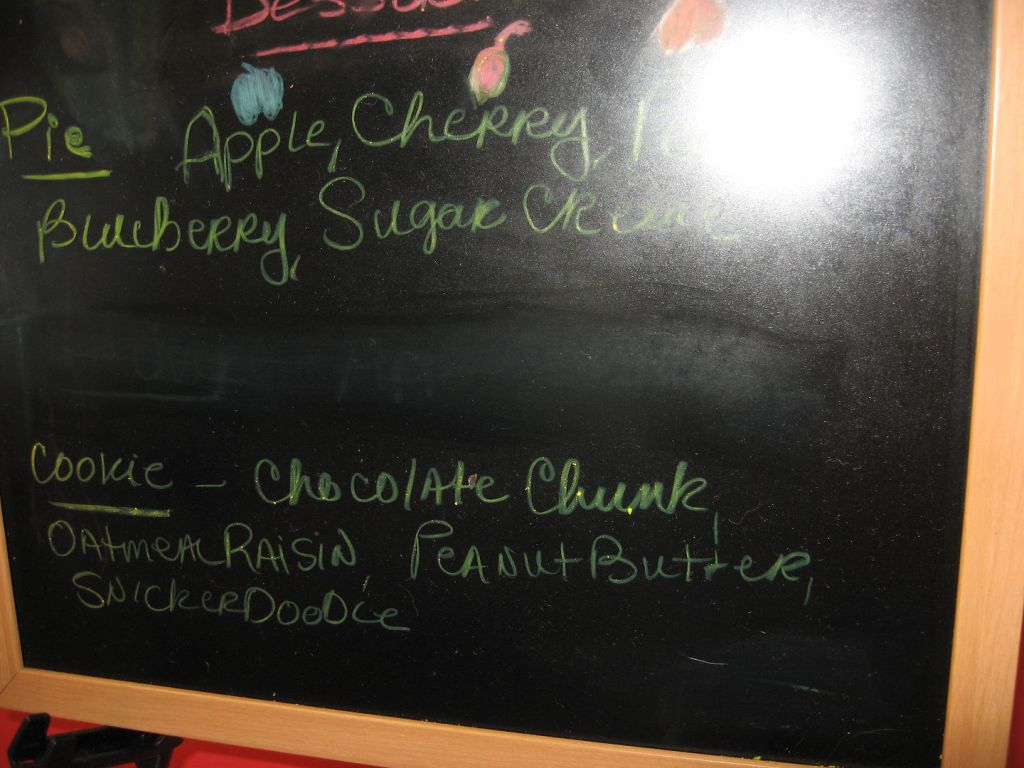 Pie Apple, Cherry,
Blueberry, Sugar Creme
Cookie - Chocolate Chunk,
Oatmeal Raisin, Peanut Butter,
Snickerdoodle